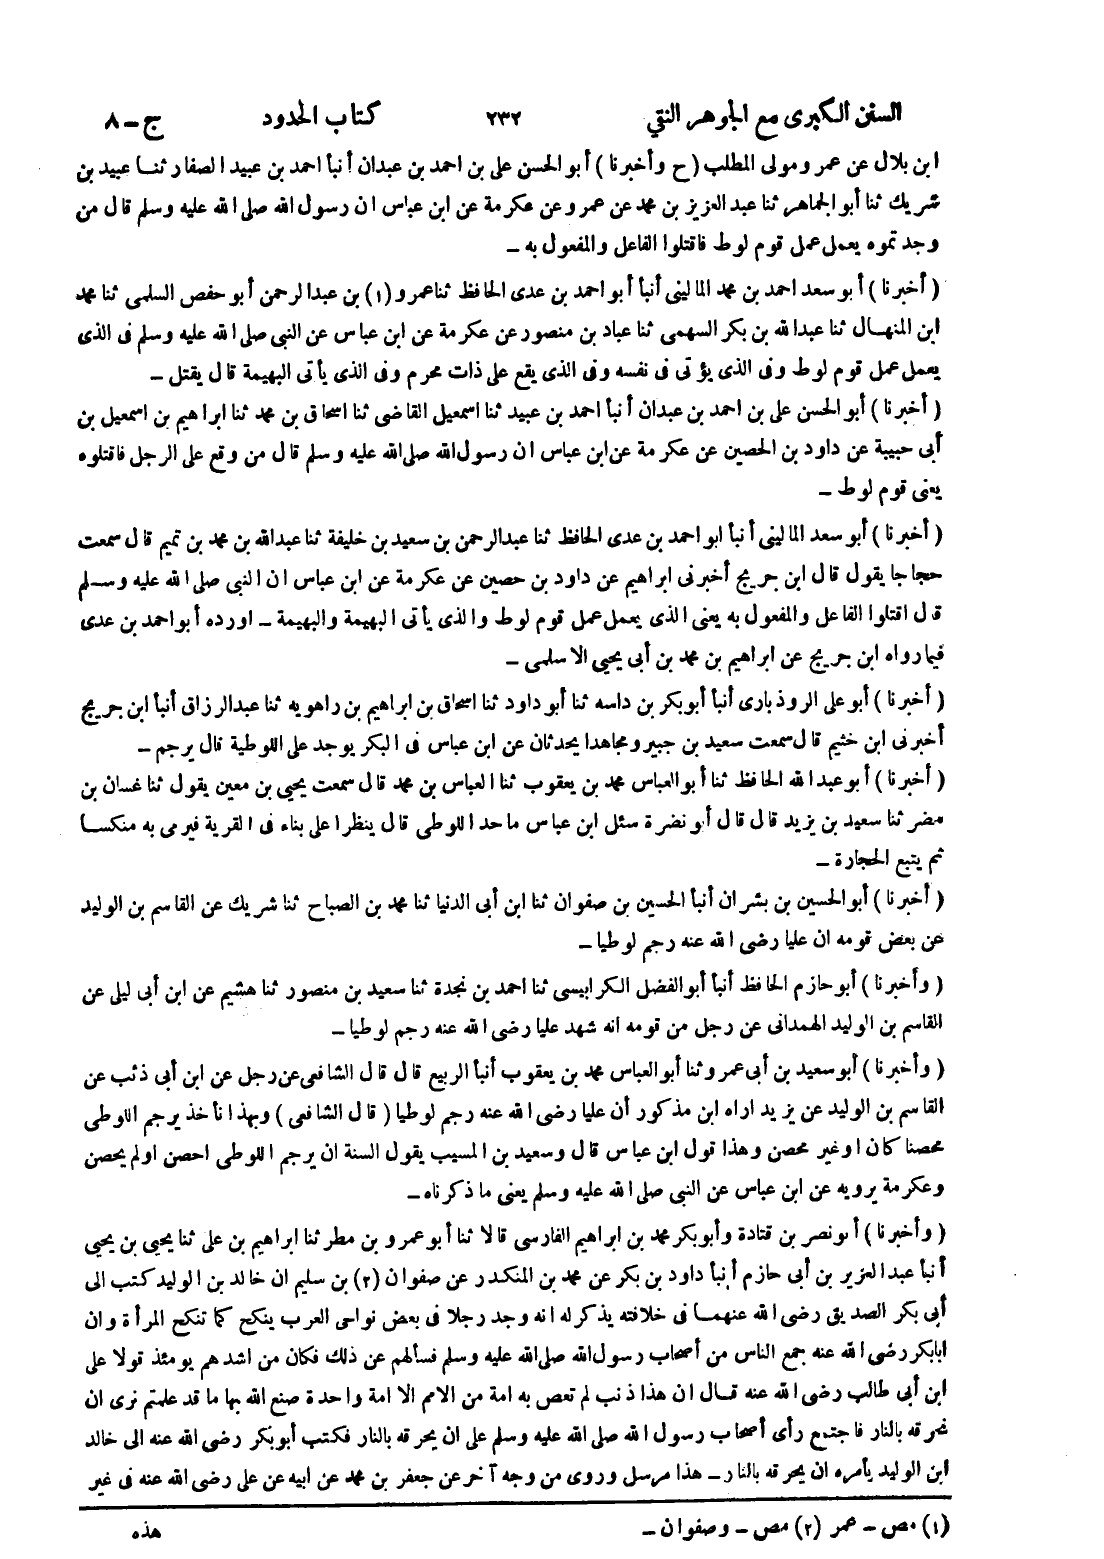 السنن الكبرى مع الجوهر النقي ٢٣٢ كتاب الحدود ج - ٨
ابن بلال عن عمرو مولى المطلب (ح وأخبرنا) أبو الحسن على بن احمد بن عبدان أنبأ احمد بن عبيد الصفار ثنا عبيد بن
شريك ثنا أبو الجماهر ثنا عبد العزيز بن محمد عن عمرو عن عكرمة عن ابن عباس ان رسول الله صلى الله عليه وسلم قال من
وجدتموه يعمل عمل قوم لوط فاقتلوا الفاعل والمفعول به –
(أخبرنا) أبو سعد احمد بن محمد المالينى أنبأ أبو احمد بن عدى الحافظ ثنا عمرو (١) بن عبد الرحمن أبو حفص السلمى ثنا محمد
ابن المنهال ثنا عبد الله بن بكر السهمى ثنا عباد بن منصور عن عكرمة عن ابن عباس عن النبى صلى الله عليه وسلم فى الذى
يعمل عمل قوم لوط وفى الذى يؤتى فى نفسه وفى الذى يقع على ذات محرم وفى الذى يأتى البهيمة قال يقتل –
(أخبرنا) أبو الحسن على بن احمد بن عبدان أنبأ احمد بن عبيد ثنا اسمعيل القاضى ثنا اسحاق بن محمد ثنا ابراهيم بن اسمعيل بن
أبى حبيبة عن داود بن الحصين عن عكرمة عن ابن عباس ان رسول الله صلى الله عليه وسلم قال من وقع على الرجل فاقتلوه
يعنى قوم لوط –
(أخبرنا) أبو سعد المالينى أنبأ ابو احمد بن عدى الحافظ ثنا عبد الرحمن بن سعيد بن خليفة ثنا عبد الله بن محمد بن تميم قال سمعت
حجاجا يقول قال ابن جريج أخبرنى ابراهيم عن داود بن حصين عن عكرمة عن ابن عباس ان النبى صلى الله عليه وسلم
قال اقتلوا الفاعل والمفعول به يعنى الذى يعمل عمل قوم لوط والذى يأتى البهيمة والبهيمة – اورده أبو احمد بن عدى
فيما رواه ابن جريج عن ابراهيم بن محمد بن أبى يحيى الاسلمى –
(أخبرنا) أبو على الروذبارى أنبأ أبو بكر بن داسه ثنا أبو داود ثنا اسحاق بن ابراهيم بن راهويه ثنا عبد الرزاق أنبأ ابن جريج
أخبرنى ابن خثيم قال سمعت سعيد بن جبير ومجاهدا يحدثان عن ابن عباس فى البكر يوجد على اللوطية قال يرجم –
(أخبرنا) أبو عبد الله الحافظ ثنا أبو العباس محمد بن يعقوب ثنا العباس بن محمد قال سمعت يحيى بن معين يقول ثنا غسان بن
مضر ثنا سعيد بن يزيد قال قال أبو نضرة سئل ابن عباس ما حد اللوطى قال ينظر اعلى بناء فى القرية فيرمى به منكسا
ثم يتبع الحجارة –
(أخبرنا) أبو الحسين بن بشران أنبأ الحسين بن صفوان ثنا ابن أبى الدنيا ثنا محمد بن الصباح ثنا شريك عن القاسم بن الوليد
عن بعض قومه ان عليا رضى الله عنه رجم لوطيا –
(وأخبرنا) أبو حازم الحافظ أنبأ أبو الفضل الكرابيسى ثنا احمد بن نجدة ثنا سعيد بن منصور ثنا هشيم عن ابن أبى ليلى عن
القاسم بن الوليد الهمدانى عن رجل من قومه انه شهد عليا رضى الله عنه رجم لوطيا –
(وأخبرنا) أبو سعيد بن أبى عمرو ثنا أبو العباس محمد بن يعقوب أنبأ الربيع قال قال الشافعى عن رجل عن ابن أبى ذئب عن
القاسم بن الوليد عن يزيد اراه ابن مذكور أن عليا رضى الله عنه رجم لوطيا (قال الشافعى) وبهذا نأخذ يرجم اللوطى
محصنا كان او غير محصن وهذا قول ابن عباس قال وسعيد بن المسيب يقول السنة ان يرجم اللوطى احصن اولم يحصن
وعكرمة يرويه عن ابن عباس عن النبى صلى الله عليه وسلم يعنى ما ذكرناه –
(وأخبرنا) أبو نصر بن قتادة وأبو بكر محمد بن ابراهيم الفارسى قالا ثنا أبو عمرو بن مطر ثنا ابراهيم بن على ثنا يحيى بن يحيى
أنبأ عبد العزيز بن أبى حازم أنبأ داود بن بكر عن محمد بن المنكدر عن صفوان (٢) بن سليم ان خالد بن الوليد كتب الى
أبى بكر الصديق رضى الله عنهما فى خلافته يذكر له انه وجد رجلا فى بعض نواحى العرب ينكح كما تنكح المرأة وان
ابابكر رضى الله عنه جمع الناس من أصحاب رسول الله صلى الله عليه وسلم فسألهم عن ذلك فكان من اشدهم يومئذ قولا على
ابن أبى طالب رضى الله عنه قال ان هذا ذنب لم تعص به امة من الامم الا امة واحدة صنع الله بها ما قد علمتم نرى ان
نحرقه بالنار فاجتمع رأى أصحاب رسول الله صلى الله عليه وسلم على ان يحرقه بالنار فكتب أبو بكر رضى الله عنه الى خالد
ابن الوليد يأمره ان يحرقه بالنار – هذا مرسل وروى من وجه آخر عن جعفر بن محمد عن ابيه عن على رضى الله عنه فى غير
(١) مص – عمر (٢) مص – وصفوان – هذه